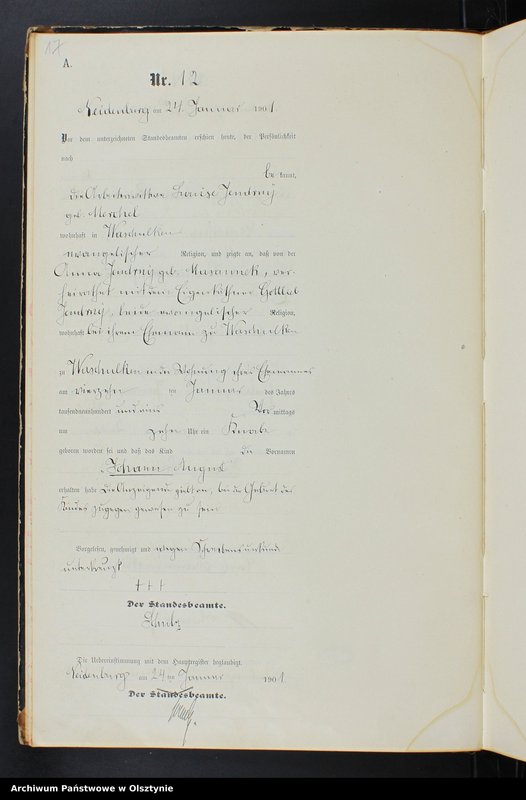 17
A.
Nr. 12
Neidenburg am 24 Januar 1901
Vor dem unterzeichneten Standesbeamten erschien heute, der Persönlichkeit
nach
be kannt,
die Arbeiterwittwe Louise Jendrny
geb. Moschel
wohnhaft in Waschulken
evangelischer Religion, und zeigte an, daß von der
Anna Jendrny geb. , ver-
heirathet mit dem Eigenkäthner Gottlieb
Jendrny, beide evangelischer Religion,
wohnhaft bei ihrem Ehemann zu Waschulken
zu Waschulken in der Wohnung ihres Ehemannes
am vierzehn ten Januar des Jahres
tausendneunhundert und eins Vor mittags
um zehn Uhr ein Knabe
geboren worden sei und daß das Kind die Vornamen
Johann August
erhalten habe. Die Anzeigende giebt an, bei der Geburt des
Kindes zugegen gewesen zu sein
Vorgelesen, genehmigt und wegen Schreibensunkunde
unterkreuzt
+++
Der Standesbeamte.
Die Uebereinstimmung mit dem Hauptregister beglaubigt.
Neidenburg am 24 ten Januar 1901.
Der Standesbeamte.
Archiwum Państwowe w Olsztynie